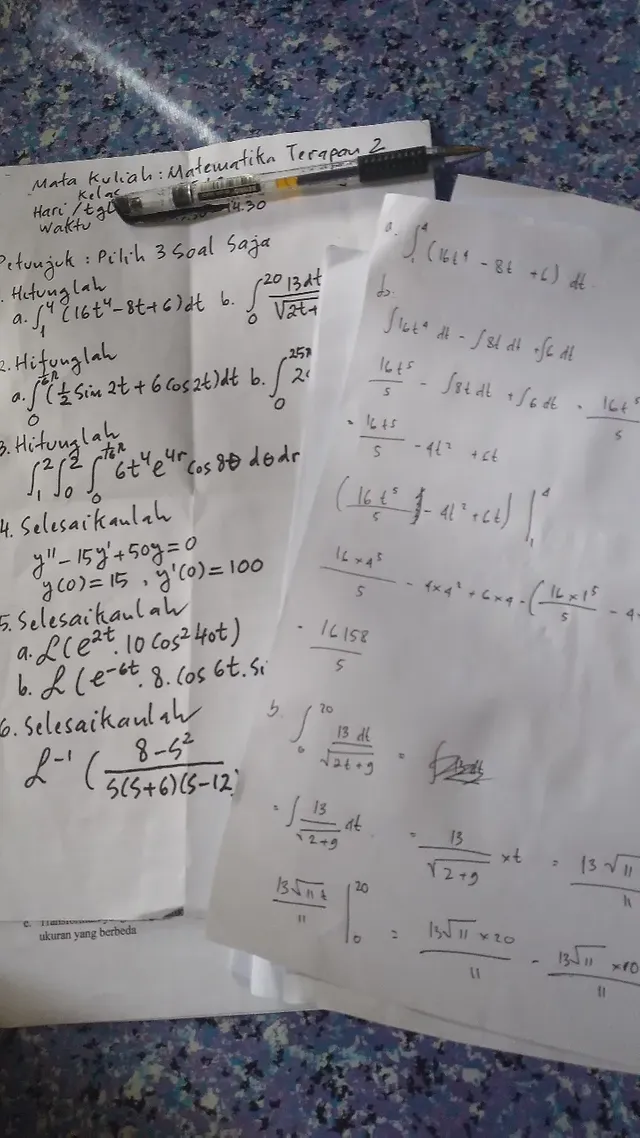 Mata Kuliah : Matematika Terapan 2
Kelas
Hari / tgl
Waktu 14.30
Petunjuk : Pilih 3 Soal Saja
1. Hitunglah
a. ∫₁⁴ (16t⁴ - 8t + 6) dt b. ∫₀²⁰ 13dt / √2t+
2. Hitunglah
a. ∫₀ (½ Sin 2t + 6 Cos 2t) dt b. ∫₀
3. Hitunglah
∫₁² ∫₀² ∫₀ 6t⁴ e⁴ʳ Cos 8θ dθ dr
4. Selesaikanlah
y'' - 15y' + 50y = 0
y(0) = 15 , y'(0) = 100
5. Selesaikanlah
a. ℒ(e²ᵗ . 10 Cos² 40t)
b. ℒ(e⁻⁶ᵗ . 8 . Cos 6t .
6. Selesaikanlah
ℒ⁻¹ ( 8 - S² / S(S+6)(S-12)
ukuran yang berbeda
a. ∫₁⁴ (16t⁴ - 8t + 6) dt
∫16t⁴ dt - ∫8t dt + ∫6 dt
16t⁵/5 - ∫8t dt + ∫6 dt = 16t⁵/5
= 16t5/5 - 4t² + 6t
(16t⁵/5 - 4t² + 6t) |₁⁴
16×4⁵/5 - 4×4² + 6×4 - (16×1⁵/5 - 4
= 16158/5
b. ∫₀²⁰ 13 dt / √2t+9 =
= ∫ 13/√2+9 dt = 13/√2+9 × t = 13√11/11
13√11 t/11 |₀²⁰ = 13√11 × 20/11 - 13√11/11